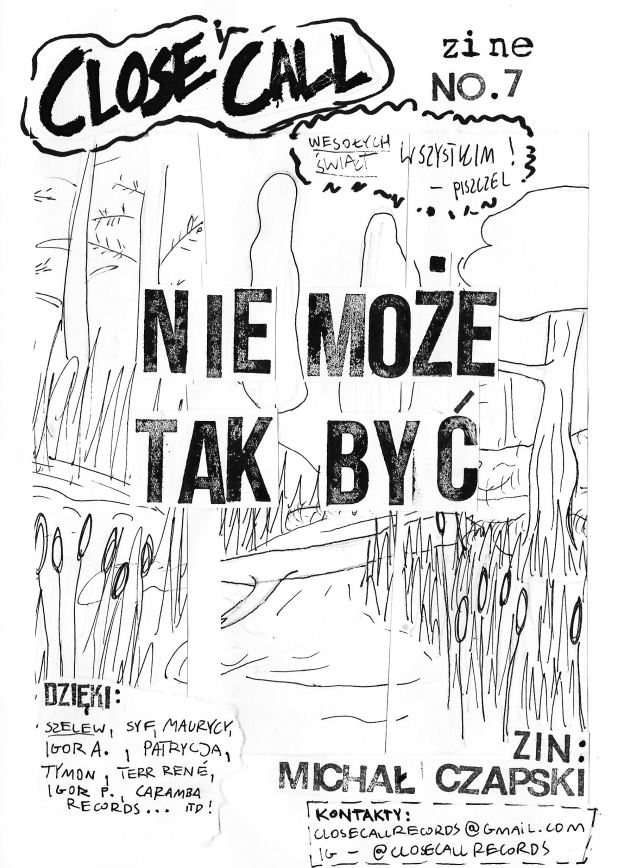 CLOSE CALL
zine
NO.7
WESOŁYCH
ŚWIĄT
WSZYSTKIM !
- PISZCZEL
NIE MOŻE
TAK BYĆ
DZIĘKI:
SZELEW, SYF, MAURYCY,
IGOR A. , PATRYCJA,
TYMON, TERR RENÉ,
IGOR P., CARAMBA
RECORDS... ITD!
ZIN:
MICHAŁ CZAPSKI
KONTAKTY:
CLOSECALLRECORDS@GMAIL.COM
IG - @CLOSECALLRECORDS